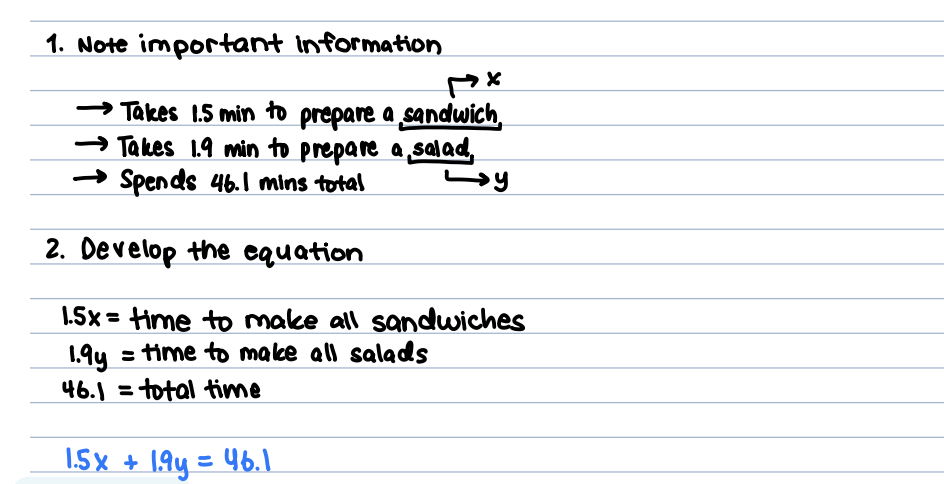 1. Note important information
→ x
→ Takes 1.5 min to prepare a sandwich
→ Takes 1.9 min to prepare a salad
→ Spends 46.1 mins total → y
2. Develop the equation
1.5x = time to make all sandwiches
1.9y = time to make all salads
46.1 = total time
1.5x + 1.9y = 46.1